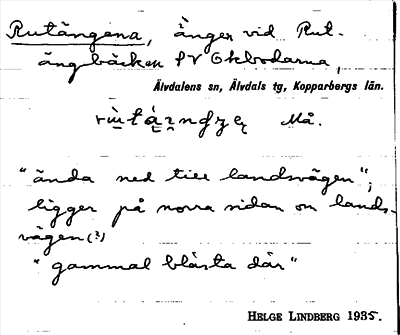 Rutängena, änger vid Rut-
ängbäcken SV Okbodarna,
Älvdalens sn, Älvdals tg, Kopparbergs län.
Må.
"ända ned till landsvägen";
ligger på norra sidan om lands-
vägen (?)
"gammal blåsta där"
HELGE LINDBERG 1935.